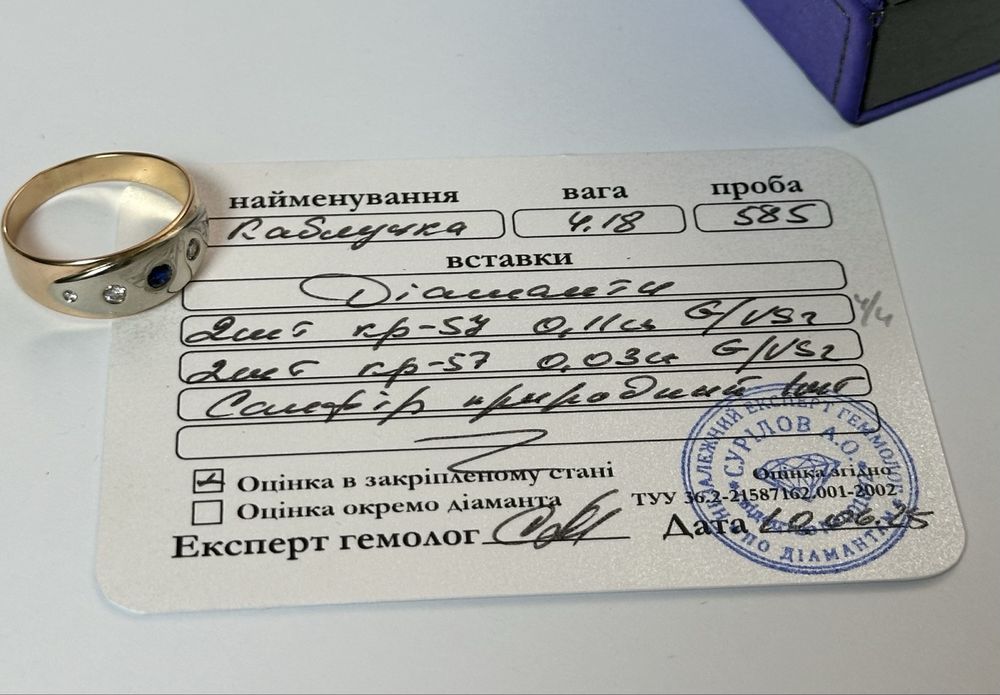 найменування вага проба
Каблучка 4.18 585
вставки
Діаманти
2шт кр-57 0,11ct G/VS2 4/4
2шт кр-57 0,03ct G/VS2
Сапфір природний 1шт
Оцінка в закріпленому стані
Оцінка окремо діаманта
Оцінка згідно
ТУУ 36.2-21587162.001-2002
Експерт гемолог Дата 10.06.25
НЕЗАЛЕЖНИЙ ЕКСПЕРТ ГЕММОЛОГ
СУРІЛОВ А.О.
ПО ДІАМАНТАМ